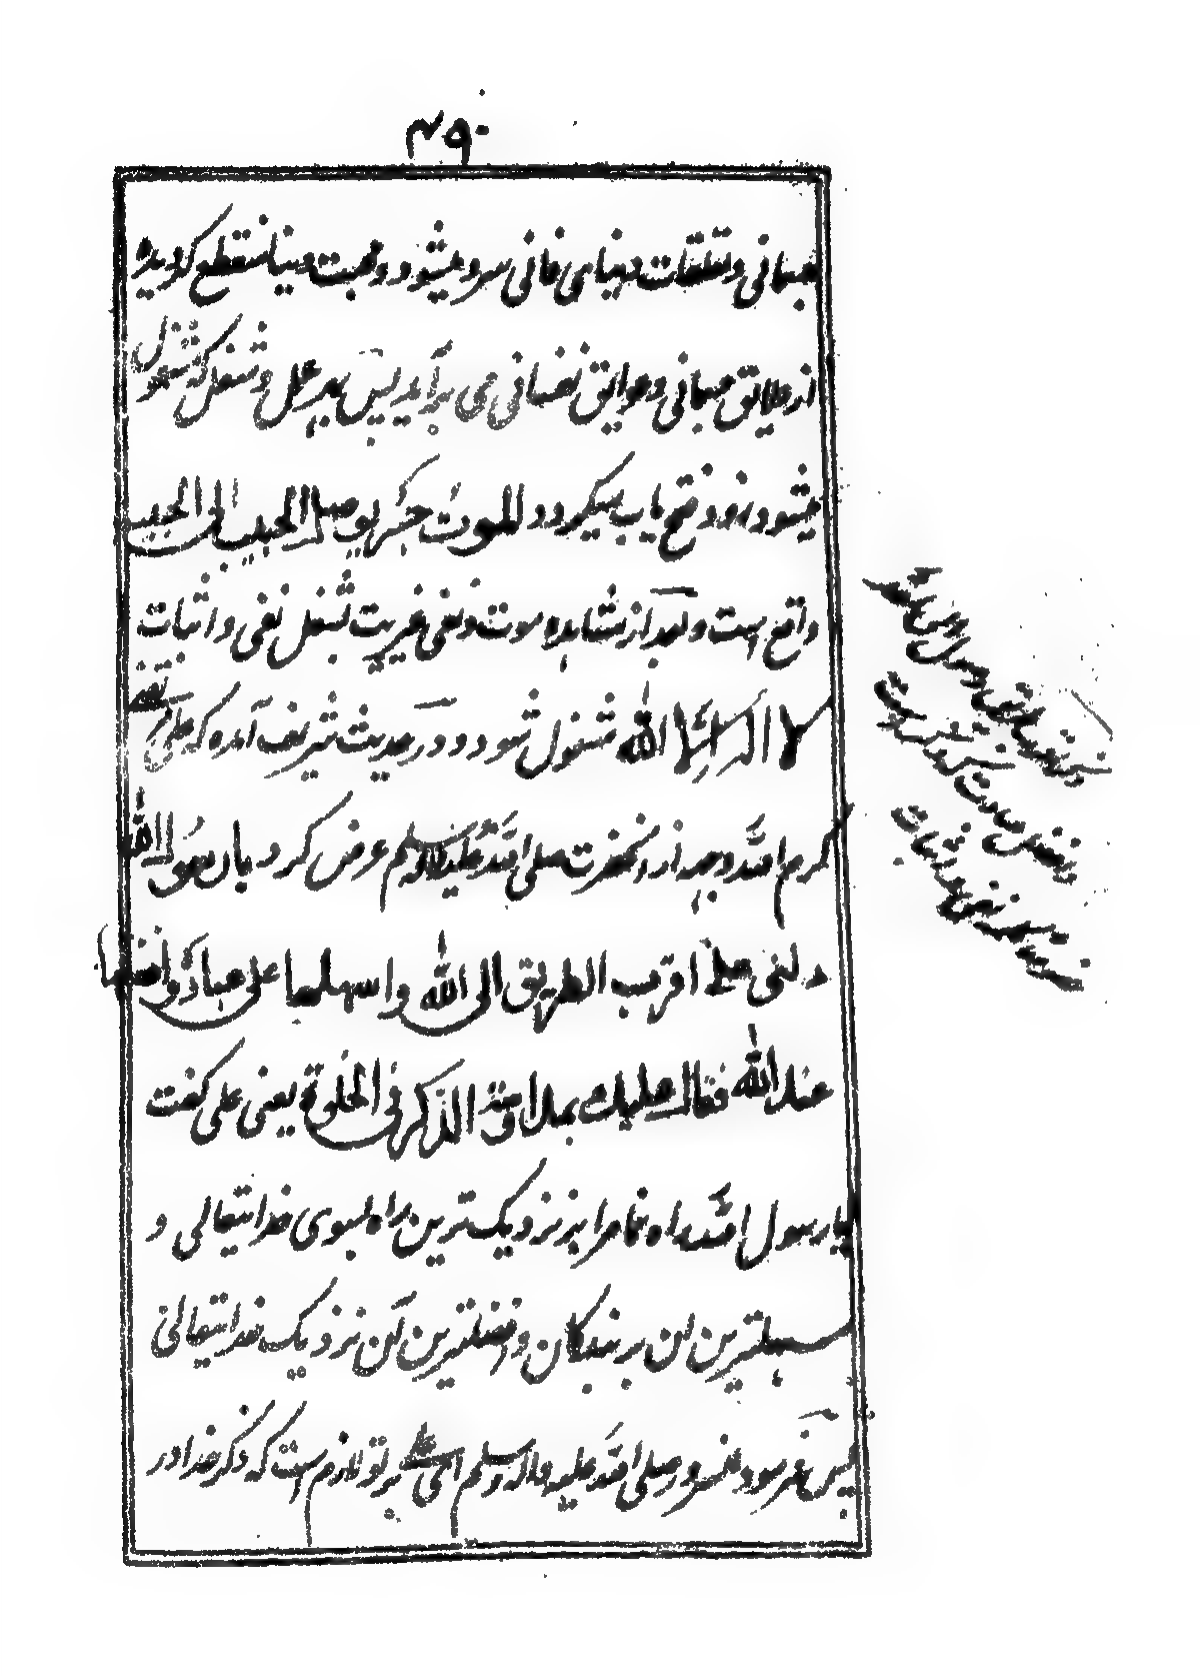 ۴۹۰
جسمانی و تعلقات دنیای فانی سرد میشود و محبت دنیا منقطع گردیده
از علایق جسمانی و عوایق نفسانی می برآید پس بهر عمل و شغل که مشغول
میشود زود فتح یاب میگردد الموت جسر یوصل الحبیب الی الحبیب
واقع است و بعد از مشاهده موت و نفی غیریت بشغل نفی و اثبات
لا اله الا الله مشغول شود و در حدیث شریف آمده که علی مرتضی
کرم الله وجهه از آنحضرت صلی الله علیه و آله وسلم عرض کرد یا رسول الله
دلنی علی اقرب الطریق الی الله و اسهلها علی عباده و افضلها
عند الله فقال علیك بمداومة الذکر فی الخلوة یعنی علی گفت
یا رسول الله راه نما مرا بر نزدیک ترین راه بسوی خدا تعالی و
سهلترین آن بر بندگان و افضلترین آن نزدیک خدا تعالی
پس فرمود آنسرور صلی الله علیه و آله وسلم ای علی بر تو لازم است که ذکر خدا در